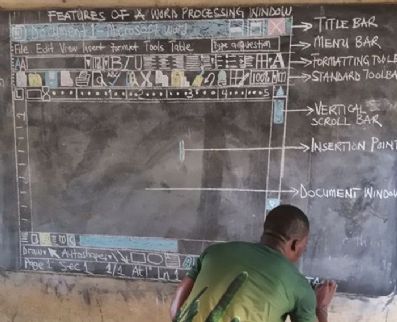 FEATURES OF A WORD PROCESSING WINDOW
Document1 - Microsoft word
TITLE BAR
File Edit View Insert format Tools Table
Type a question
MENU BAR
B/U
A
FORMATTING TOOLB
100%
STANDARD TOOLBA
1 2 3 4 5
VERTICAL
SCROLL BAR
INSERTION POINT
DOCUMENT WINDOW
Draw Autoshapes
Page 1 Sec 1 1/1 At 1" Ln 1